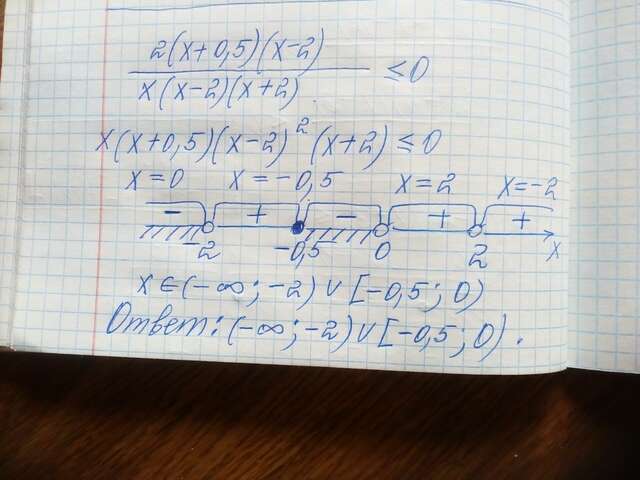 2(x+0,5)(x-2)
x(x-2)(x+2)
≤0
x(x+0,5)(x-2)²(x+2)≤0
x=0 x=-0,5 x=2 x=-2
- + - + +
-2 -0,5 0 2 x
x∈(-∞;-2)∪[-0,5;0)
Ответ: (-∞;-2)∪[-0,5;0).